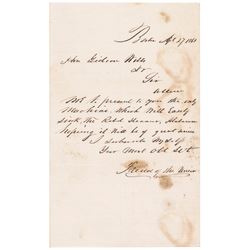 Boston Apl 27 1863
Hon Gideon Wells
Sir
Allow
Me to present to you the only
Machine, which will easily
Sink, the Rebel Steamer, Alabama
Hoping it will be of great
I subscribe Myself
Your Most Obt Svt
Friend of the Union